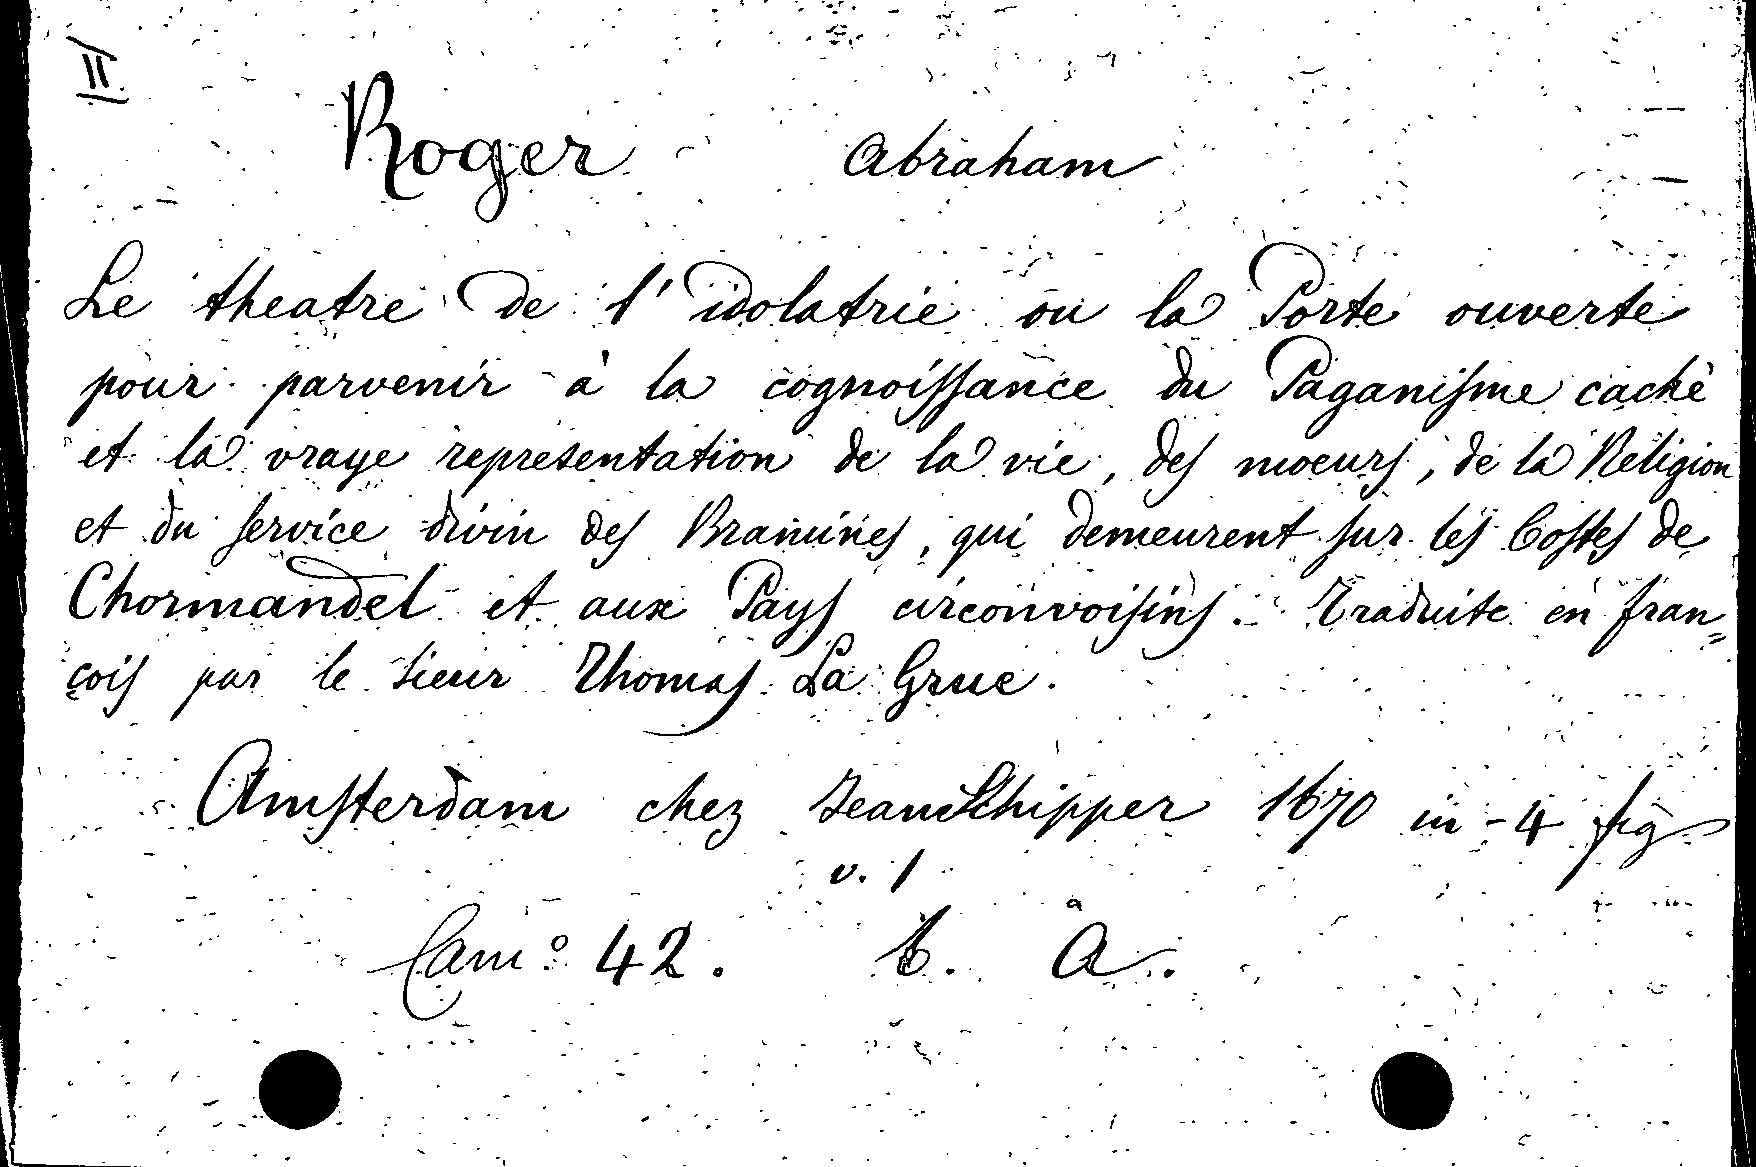 II
Roger Abraham
Le theatre de l'idolatrie ou la Porte ouverte
pour parvenir à la cognoissance du Paganisme caché
et la vraye representation de la vie, des moeurs, de la Religion
et du service divin des Bramines, qui demeurent sur les Costes de
Chormandel et aux Pays circonvoisins. Traduite en fran=
çois par le sieur Thomas La Grue.
Amsterdam chez Jean Schipper 1670 in-4 fig
v. 1
Cam° 42. b. A.